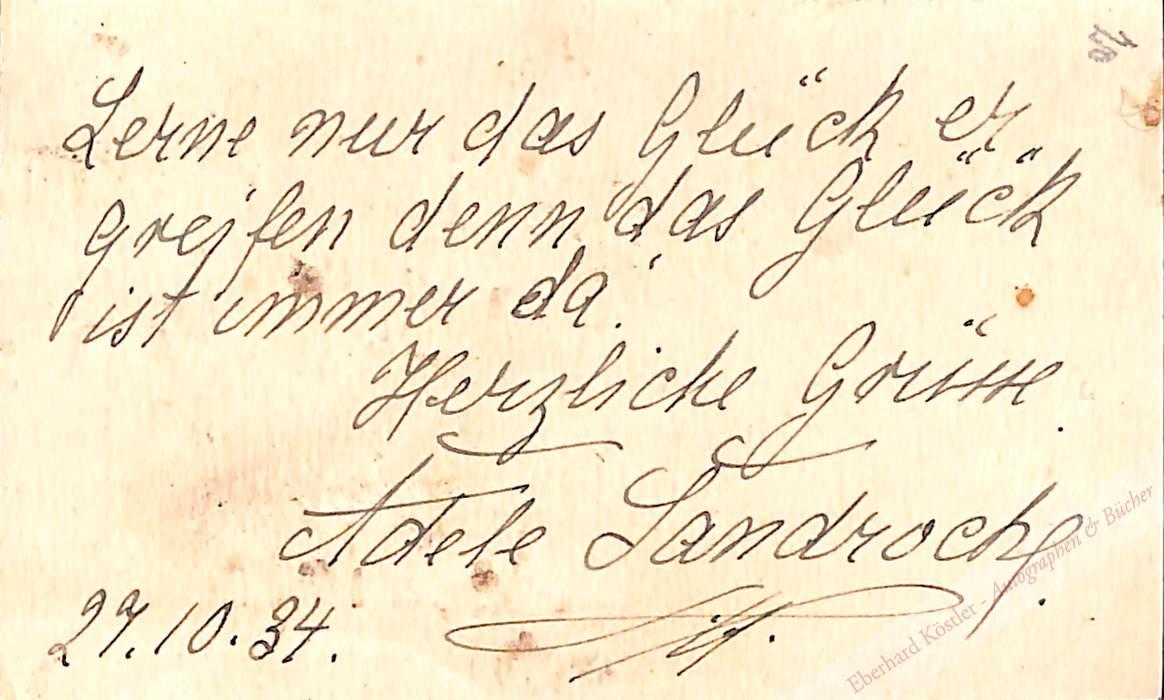 Lerne nur das Glück er
greifen denn das Glück
ist immer da."
Herzliche Grüsse.
Adele Sandrock.
27.10.34.
Eberhard Köstler - Autographen & Bücher